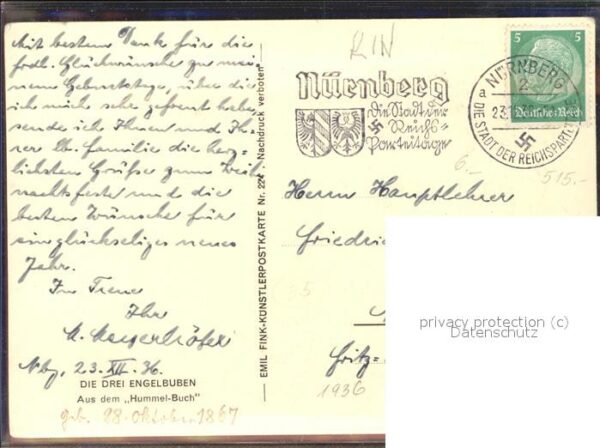 Mit bestem Dank für die
frdl. Glückwünsche zu mei-
nem Geburtstage, über die
ich mich sehr gefreut habe
sende ich Ihnen und Ih-
rer lb. Familie die herz-
lichsten Grüße zum Weih-
nachtsfeste und die
besten Wünsche für
ein glückseliges neues
Jahr.
In Treue
Ihr
Nbg, 23. XII. 36.
DIE DREI ENGELBUBEN
Aus dem „Hummel-Buch"
geb. 28. Oktober 1867
EMIL FINK-KÜNSTLERPOSTKARTE Nr. 224 Nachdruck verboten
KIN
Nürnberg
Die Stadt der
Reichs-
parteitage
5 5
Deutsches Reich
NÜRNBERG
2
a
DIE STADT DER REICHSPARTEI
6.-
515.-
Herrn Hauptlehrer
Friedri
5
Fritz-
1936
privacy protection (c)
Datenschutz